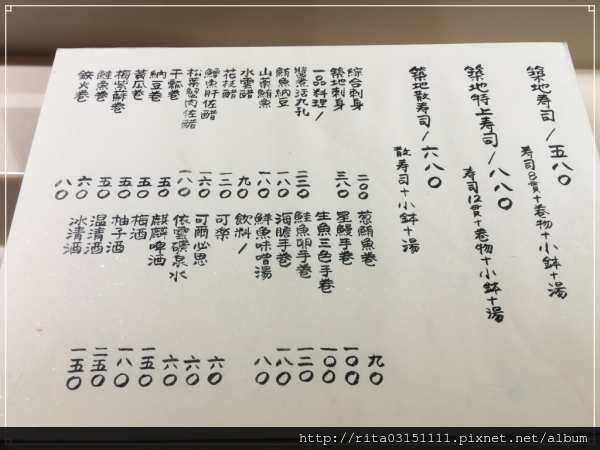 築地寿司/五八0
寿司8貫+巻物+小鉢+湯
築地特上寿司/八八0
寿司12貫+巻物+小鉢+湯
築地散寿司/六八0
散寿司+小鉢+湯
綜合刺身
築地刺身
一品料理/
醬煮活九孔
鮪魚納豆
山藥鮪魚
水雲醋
花枝醋
鰻肝佐醋
松葉蟹肉佐醋
干瓢巻
納豆巻
黃瓜巻
梅紫蘇巻
鮭魚巻
鐵火巻
二00
三八0
二三0
一八0
一八0
九0
一二0
一六0
一八0
五0
五0
五0
五0
六0
八0
蔥鮪魚巻
星鰻手巻
生魚三色手巻
鮭魚卵手巻
海膽手巻
鮮魚味噌湯
飲料/
可樂
可爾必思
依雲礦泉水
麒麟啤酒
梅酒
柚子酒
温清酒
冰清酒
九0
一00
一00
一二0
一八0
八0
六0
六0
六0
一五0
一八0
二五0
一五0
http://rita03151111.pixnet.net/album